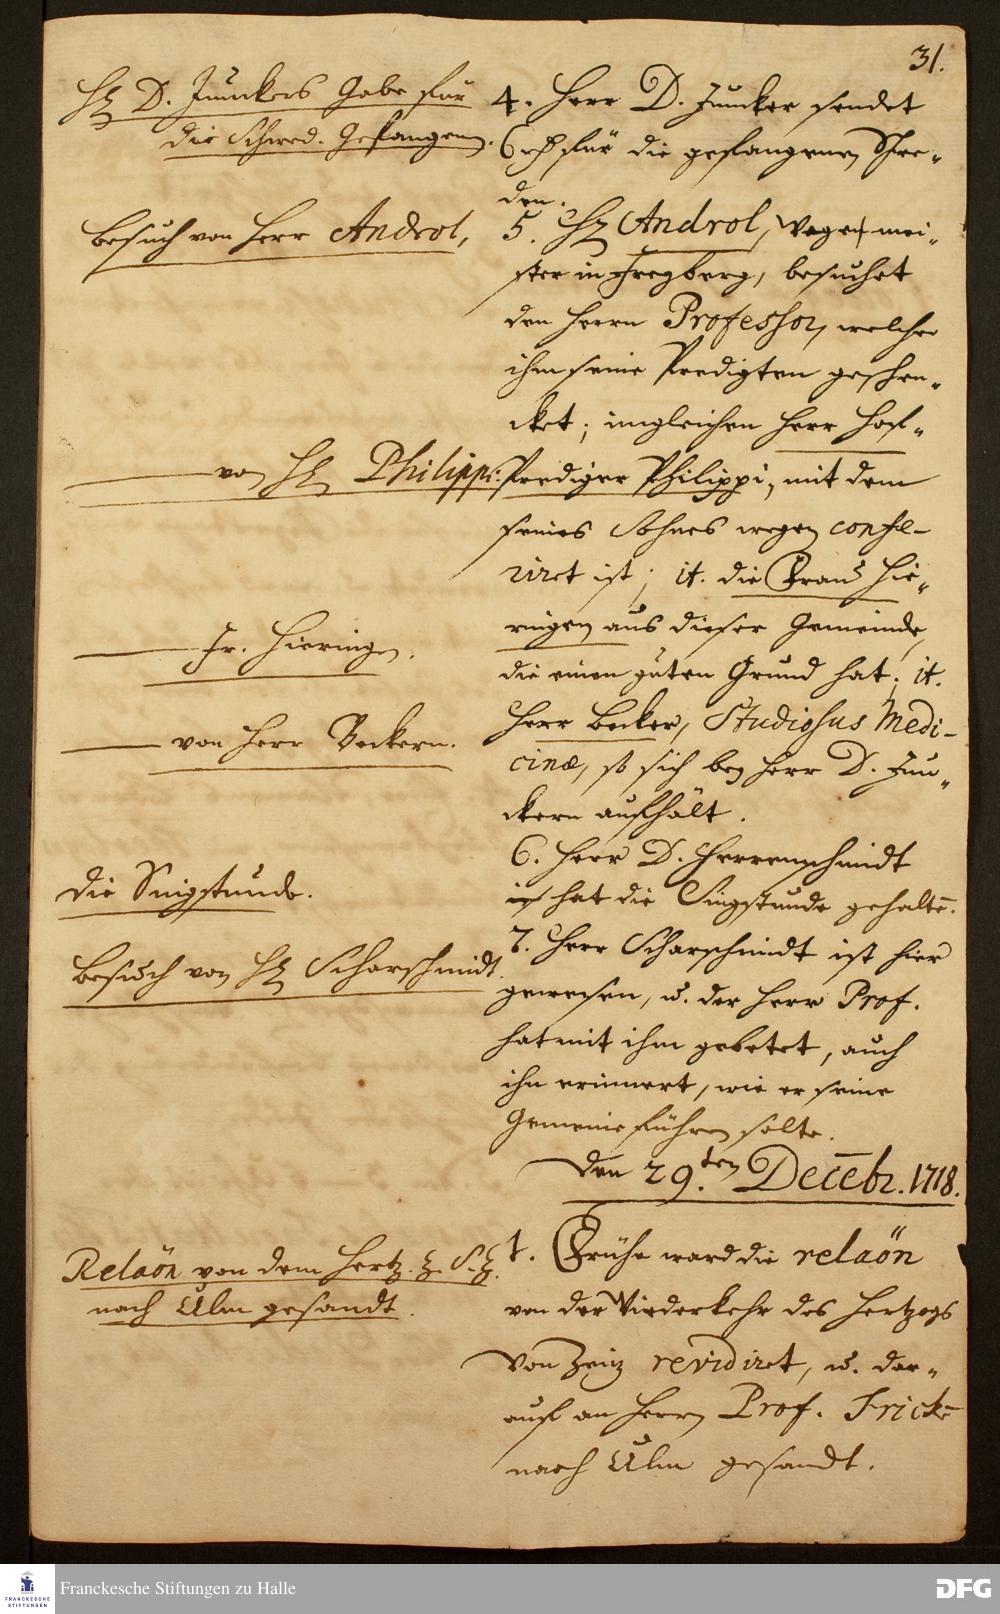 31.
H. D. Junckers Gabe für
die Schwed. Gefangenen.
4. Herr D. Juncker sendet
6 rh für die gefangenen Schwe-
den.
Besuch von Herr Androl,
5. H. Androl, Wagenmei-
ster in Freyberg, besuchet
den Herrn Professor, welcher
ihm seine Predigten geschen-
cket; imgleichen Herr Hof-
von H. Philippi.
Prediger Philippi, mit dem
seines Sohnes wegen confe-
riret ist; it. die Frau Hie-
Fr. Hieringen.
ringen aus dieser Gemeinde,
die einen guten Grund hat; it.
von Herr Beckern.
Herr Becker, Studiosus Medi-
cinæ, so sich bey Herr D. Jun-
ckern aufhält.
6. Herr D. Herrnschmidt
Die Singstunde.
ist hat die Singstunde gehalte͞.
Besuch von H. Scharschmidt.
7. Herr Scharschmidt ist hier
gewesen, u. der Herr Prof.
hat mit ihm gebetet, auch
ihn erinnert, wie er seine
Gemeine führen solte.
Den 29.ten Decebr. 1718.
Relaön von dem Hertz. z. S. Z.
nach Ulm gesandt.
1. Frühe ward die relaön
von der Wiederkehr des Hertzogs
von Zeiz revidiret, u. dar-
auf an Herrn Prof. Fricke
nach Ulm gesandt.
Franckesche Stiftungen zu Halle
FRANCKESCHE
STIFTUNGEN
DFG